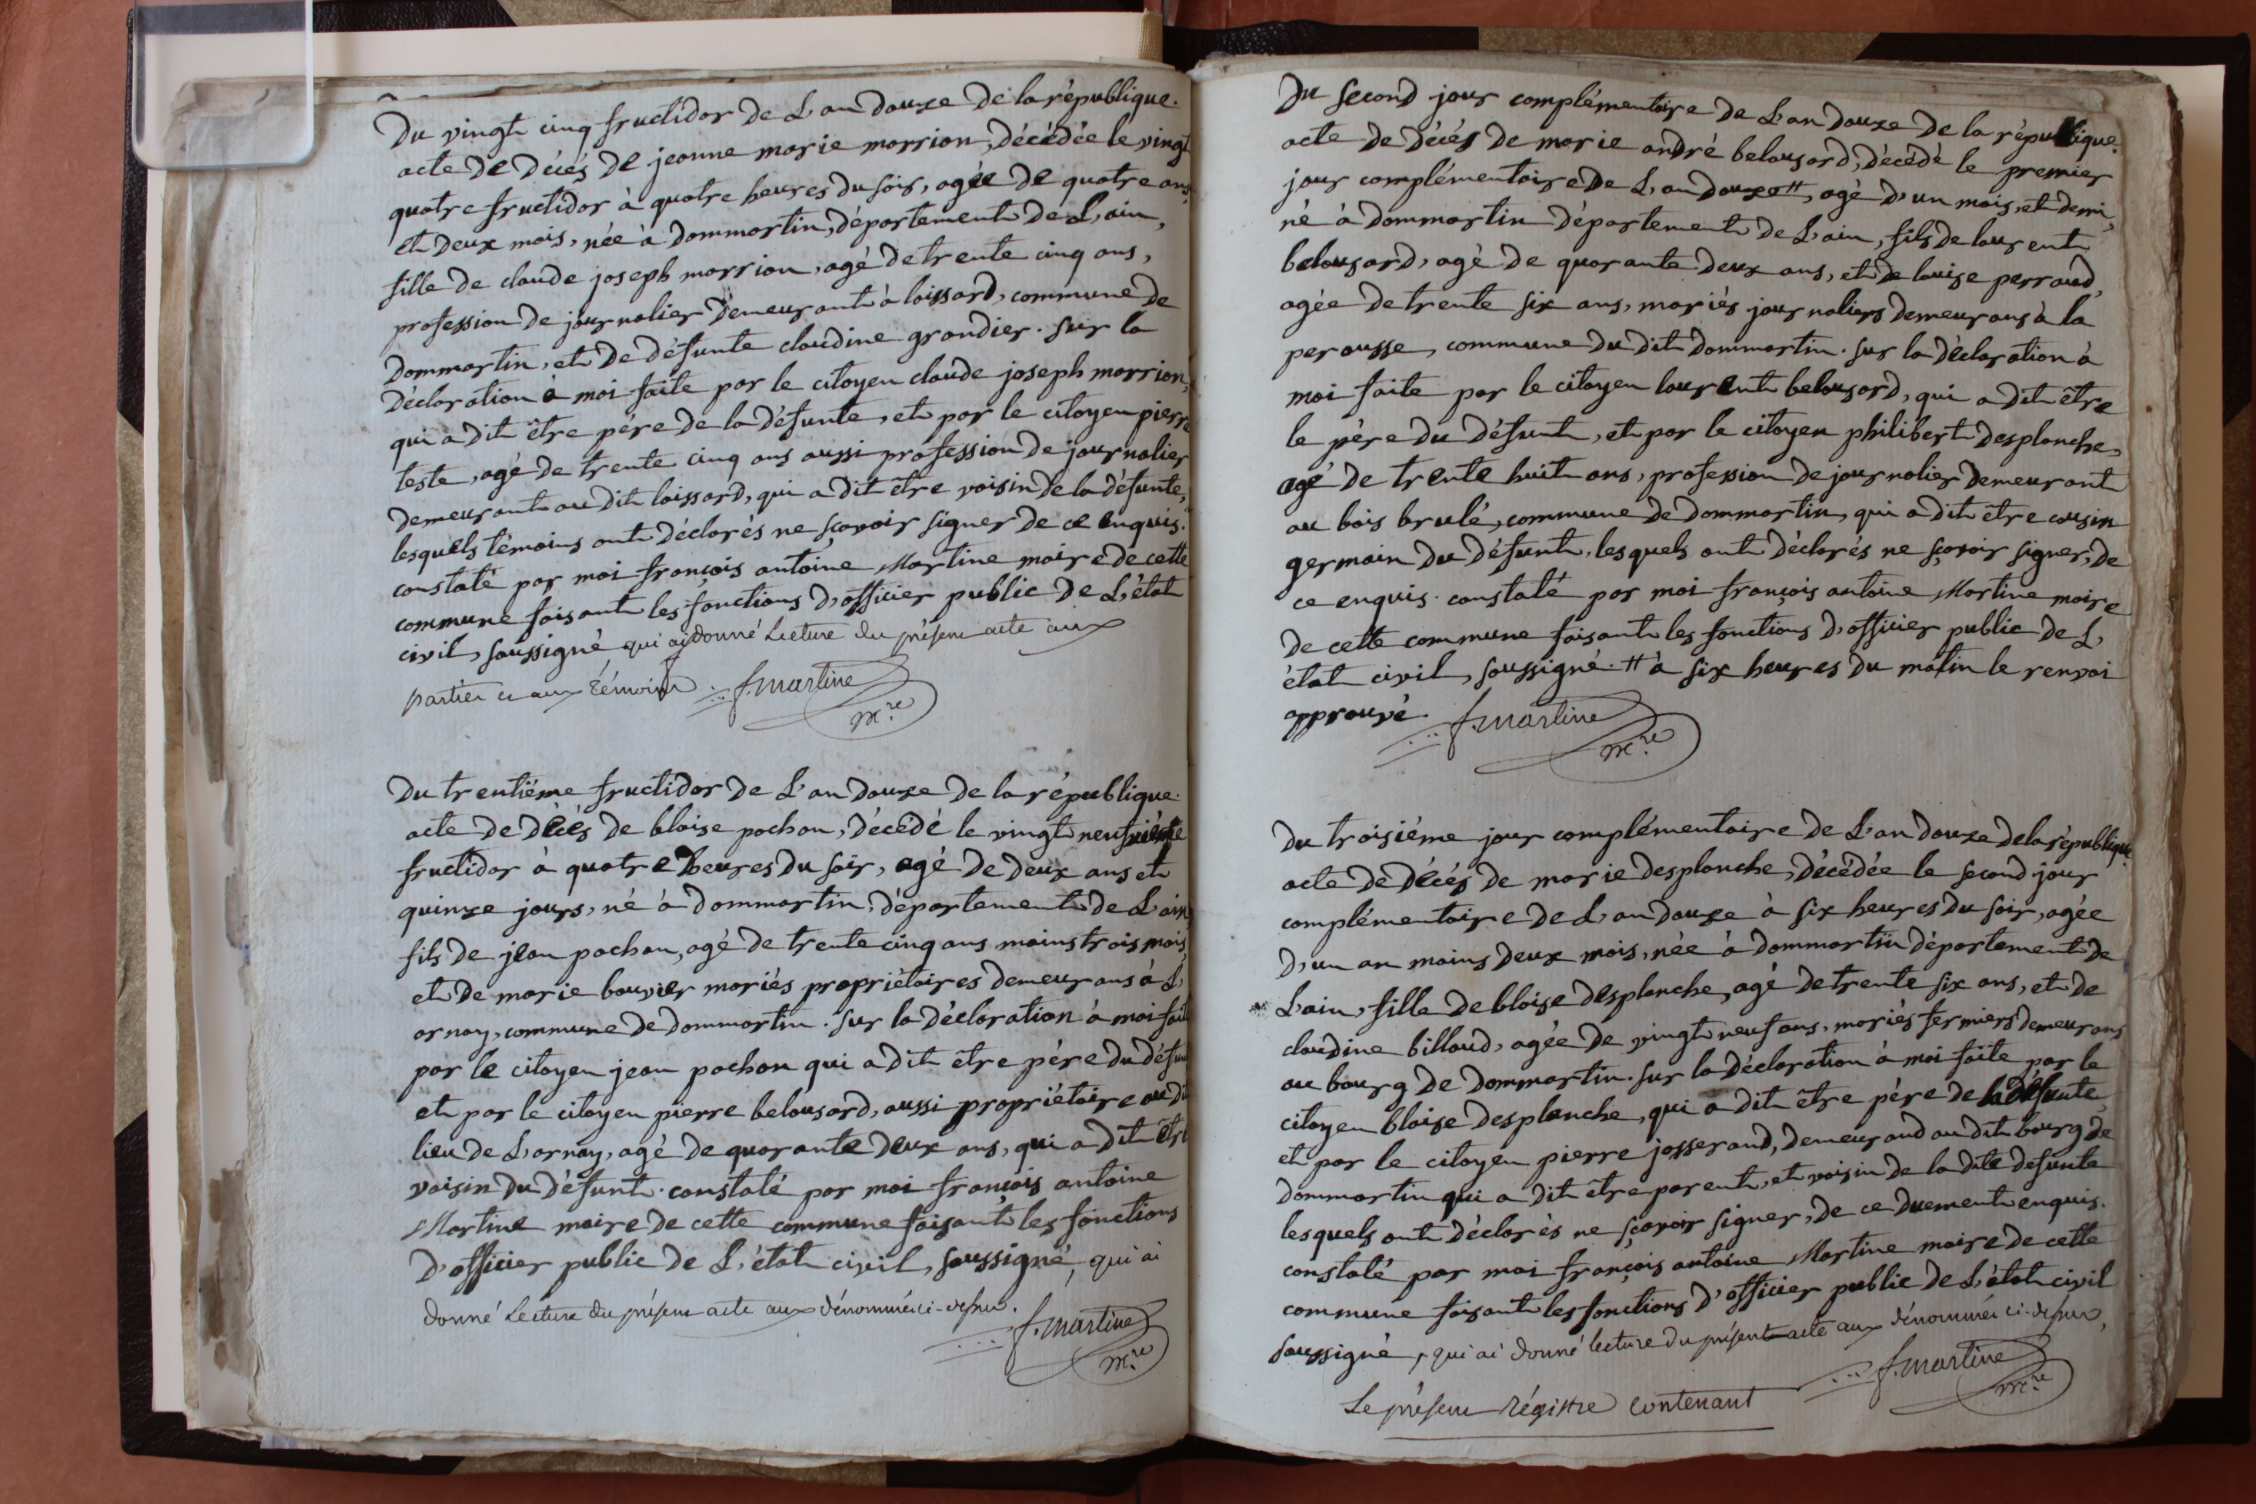 Du vingt cinq fructidor de L'an douze de la république.
acte de décés de jeanne marie marrion, décédée le vingt
quatre fructidor à quatre heures du soir, agée de quatre ans
et deux mois, née à dommartin, département de L'ain,
fille de claude joseph marrion, agé de trente cinq ans,
profession de journalier demeurant à loissard, commune de
dommartin, et de défunte claudine grandier. sur la
déclaration à moi faite par le citoyen claude joseph marrion,
qui a dit être pére de la défunte, et par le citoyen pierre
teste, agé de trente cinq ans aussi profession de journalier
demeurant au dit loissard, qui a dit être voisin de la défunte,
lesquels témoins ont déclarés ne sçavoir signer de ce enquis.
constaté par moi françois antoine Martine maire de cette
commune faisant les fonctions d'officier public de L'état
civil, soussigné qui ai donné Lecture du présent acte aux
parties et aux témoins. f. martine
m.re
Du trentiéme fructidor de L'an douze de la république.
acte de décés de blaise pochon, décédé le vingt neufviéme
fructidor à quatre heures du soir, agé de deux ans et
quinze jours, né à dommartin, département de L'ain,
fils de jean pochon, agé de trente cinq ans moins trois mois,
et de marie bouvier mariés propriétaires demeurans à L'
arnay, commune de dommartin. sur la déclaration à moi faite
par le citoyen jean pochon qui a dit etre pére du défunt
et par le citoyen pierre belousard, aussi propriétaire au dit
lieu de L'arnay, agé de quarante deux ans, qui a dit être
voisin du défunt. constaté par moi françois antoine
Martine maire de cette commune faisant les fonctions
d'officier public de L'état civil, soussigné, qui ai
donné Lecture du présent acte aux dénommés ci-dessus.
f. martine
m.re
Du second jour complémentaire de L'an douze de la république.
acte de décés de marie andré belousard, décédé le premier
jour complémentaire de L'an douze #, agé d'un mois, et demi,
né à dommartin département de L'ain, fils de laurent
belousard, agé de quarante deux ans, et de louise perraud,
agée de trente six ans, mariés journaliers demeurans à la
perousse, commune du dit dommartin. sur la déclaration à
moi faite par le citoyen laurent belousard, qui a dit être
le pére du défunt, et par le citoyen philibert desplanche,
agé de trente huit ans, profession de journalier demeurant
au bois brulé, commune de dommartin, qui a dit être cousin
germain du défunt, lesquels ont déclarés ne sçavoir signer, de
ce enquis. constaté par moi françois antoine Martine maire
de cette commune faisant les fonctions d'officier public de L'
état civil, soussigné. # à six heures du matin le renvoi
approuvé. f. martine
m.re
du troisiéme jour complémentaire de L'an douze de la république
acte de décés de marie desplanche, décédée le second jour
complémentaire de L'an douze à six heures du soir, agée
d'un an moins deux mois, née à dommartin département de
L'ain, fille de blaise desplanche, agé de trente six ans, et de
claudine billoud, agée de vingt neuf ans, mariés fermiers demeurans
au bourg de dommartin. sur la déclaration à moi faite par le
citoyen blaise desplanche, qui a dit être pére de la défunte
et par le citoyen pierre josserand, demeurand au dit bourg de
dommartin qui a dit être parent, et voisin de la dite defunte
lesquels ont déclarés ne sçavoir signer, de ce duement enquis.
constaté par moi françois antoine Martine maire de cette
commune faisant les fonctions d'officier public de L'état civil
soussigné, qui ai donné lecture du présent acte aux dénommés ci-dessus,
f. martine
m.re
Le présent régistre contenant